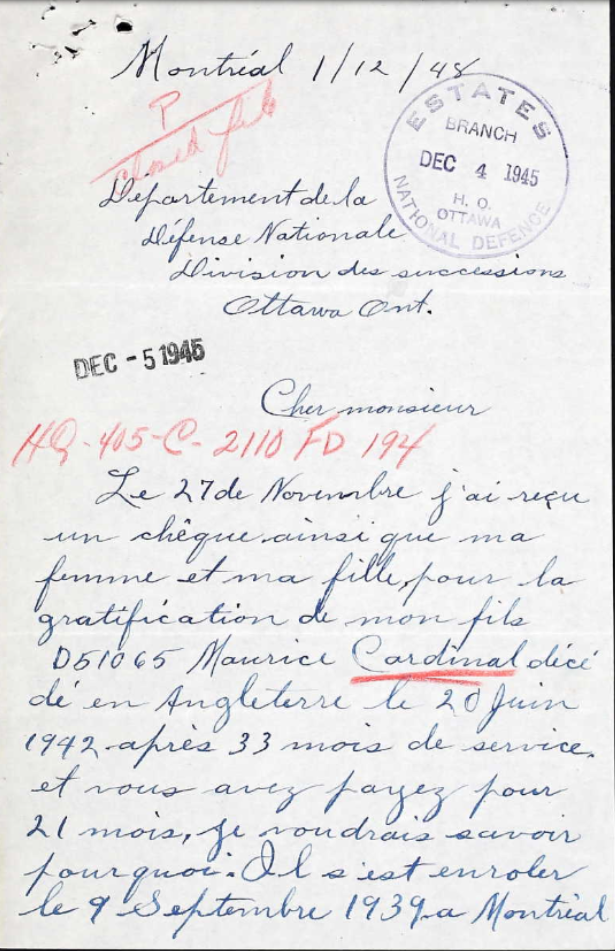 Montréal 1/12/48
P
closed file
ESTATES
BRANCH
DEC 4 1945
H. Q.
OTTAWA
NATIONAL DEFENCE
Département de la
Défense Nationale
Division des successions
Ottawa Ont.
DEC - 5 1945
Cher monsieur
HQ-405-C-2110 FD 194
Le 27 de Novembre j'ai reçu
un chêque ainsi que ma
femme et ma fille, pour la
gratification de mon fils
D51065 Maurice Cardinal décé
dé en Angleterre le 20 Juin
1942 après 33 mois de service.
et vous avez payez pour
21 mois, je voudrais savoir
pourquoi. Il s'est enroler
le 9 Septembre 1939 a Montréal